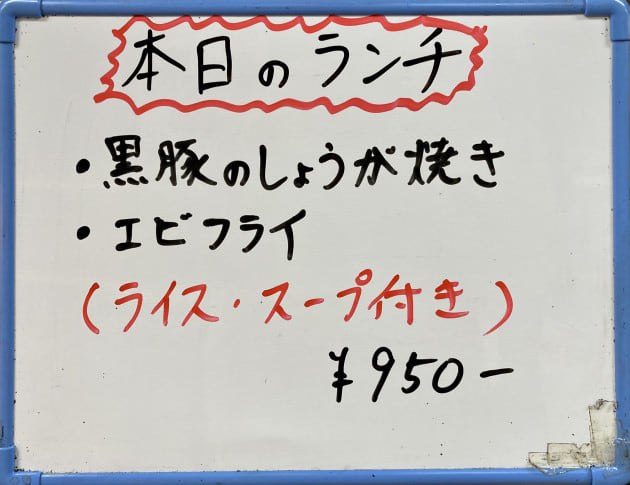 本日のランチ
・黒豚のしょうが焼き
・エビフライ
(ライス・スープ付き)
¥950ー